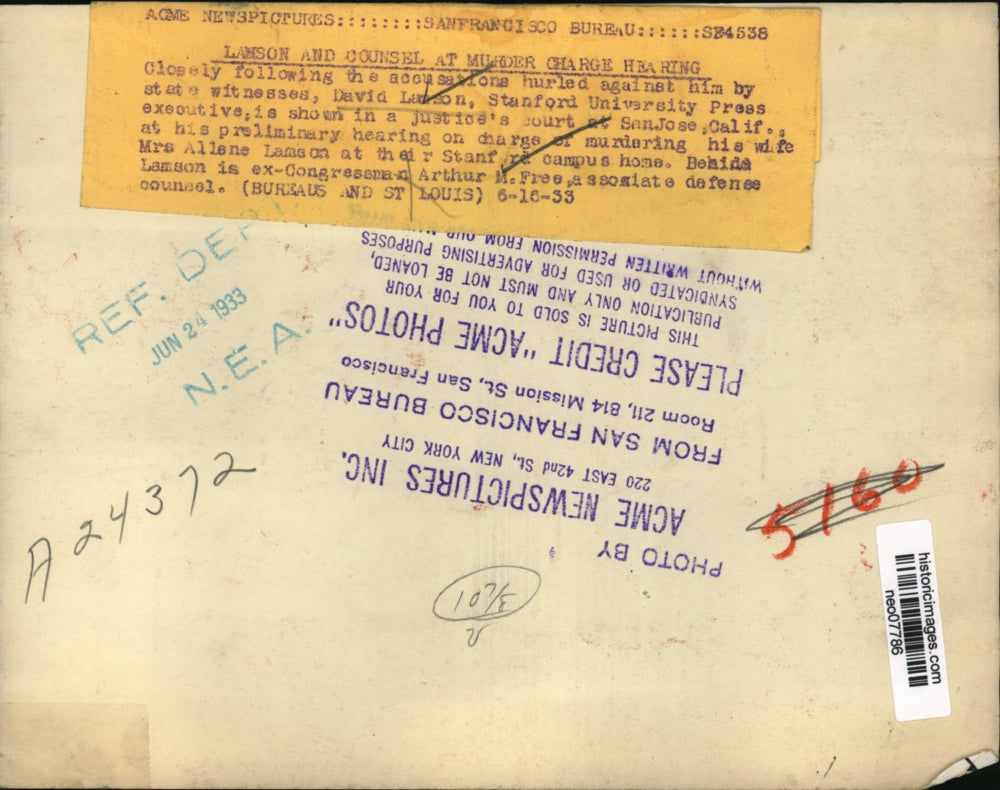 ACME NEWSPICTURES::::::::SANFRANCISCO BUREAU::::::SF4538
LAMSON AND COUNSEL AT MURDER CHARGE HEARING
Closely following the accusations hurled against him by
state witnesses, David Lamson, Stanford University Press
executive,is shown in a justice's court at SanJose,Calif.,
at his preliminary hearing on charge of murdering his wife
Mrs Allene Lamson at their Stanford campus home. Behind
Lamson is ex-Congressman Arthur M.Free,associate defense
counsel. (BUREAUS AND ST LOUIS) 6-16-33
REF. DEPT.
JUN 24 1933
N.E.A.
PHOTO BY
ACME NEWSPICTURES INC.
220 EAST 42nd St., NEW YORK CITY
FROM SAN FRANCISCO BUREAU
Room 211, 814 Mission St., San Francisco
PLEASE CREDIT "ACME PHOTOS"
THIS PICTURE IS SOLD TO YOU FOR YOUR
PUBLICATION ONLY AND MUST NOT BE LOANED,
SYNDICATED OR USED FOR ADVERTISING PURPOSES
WITHOUT WRITTEN PERMISSION FROM OUR
A24372
5160
historicimages.com
neo07786